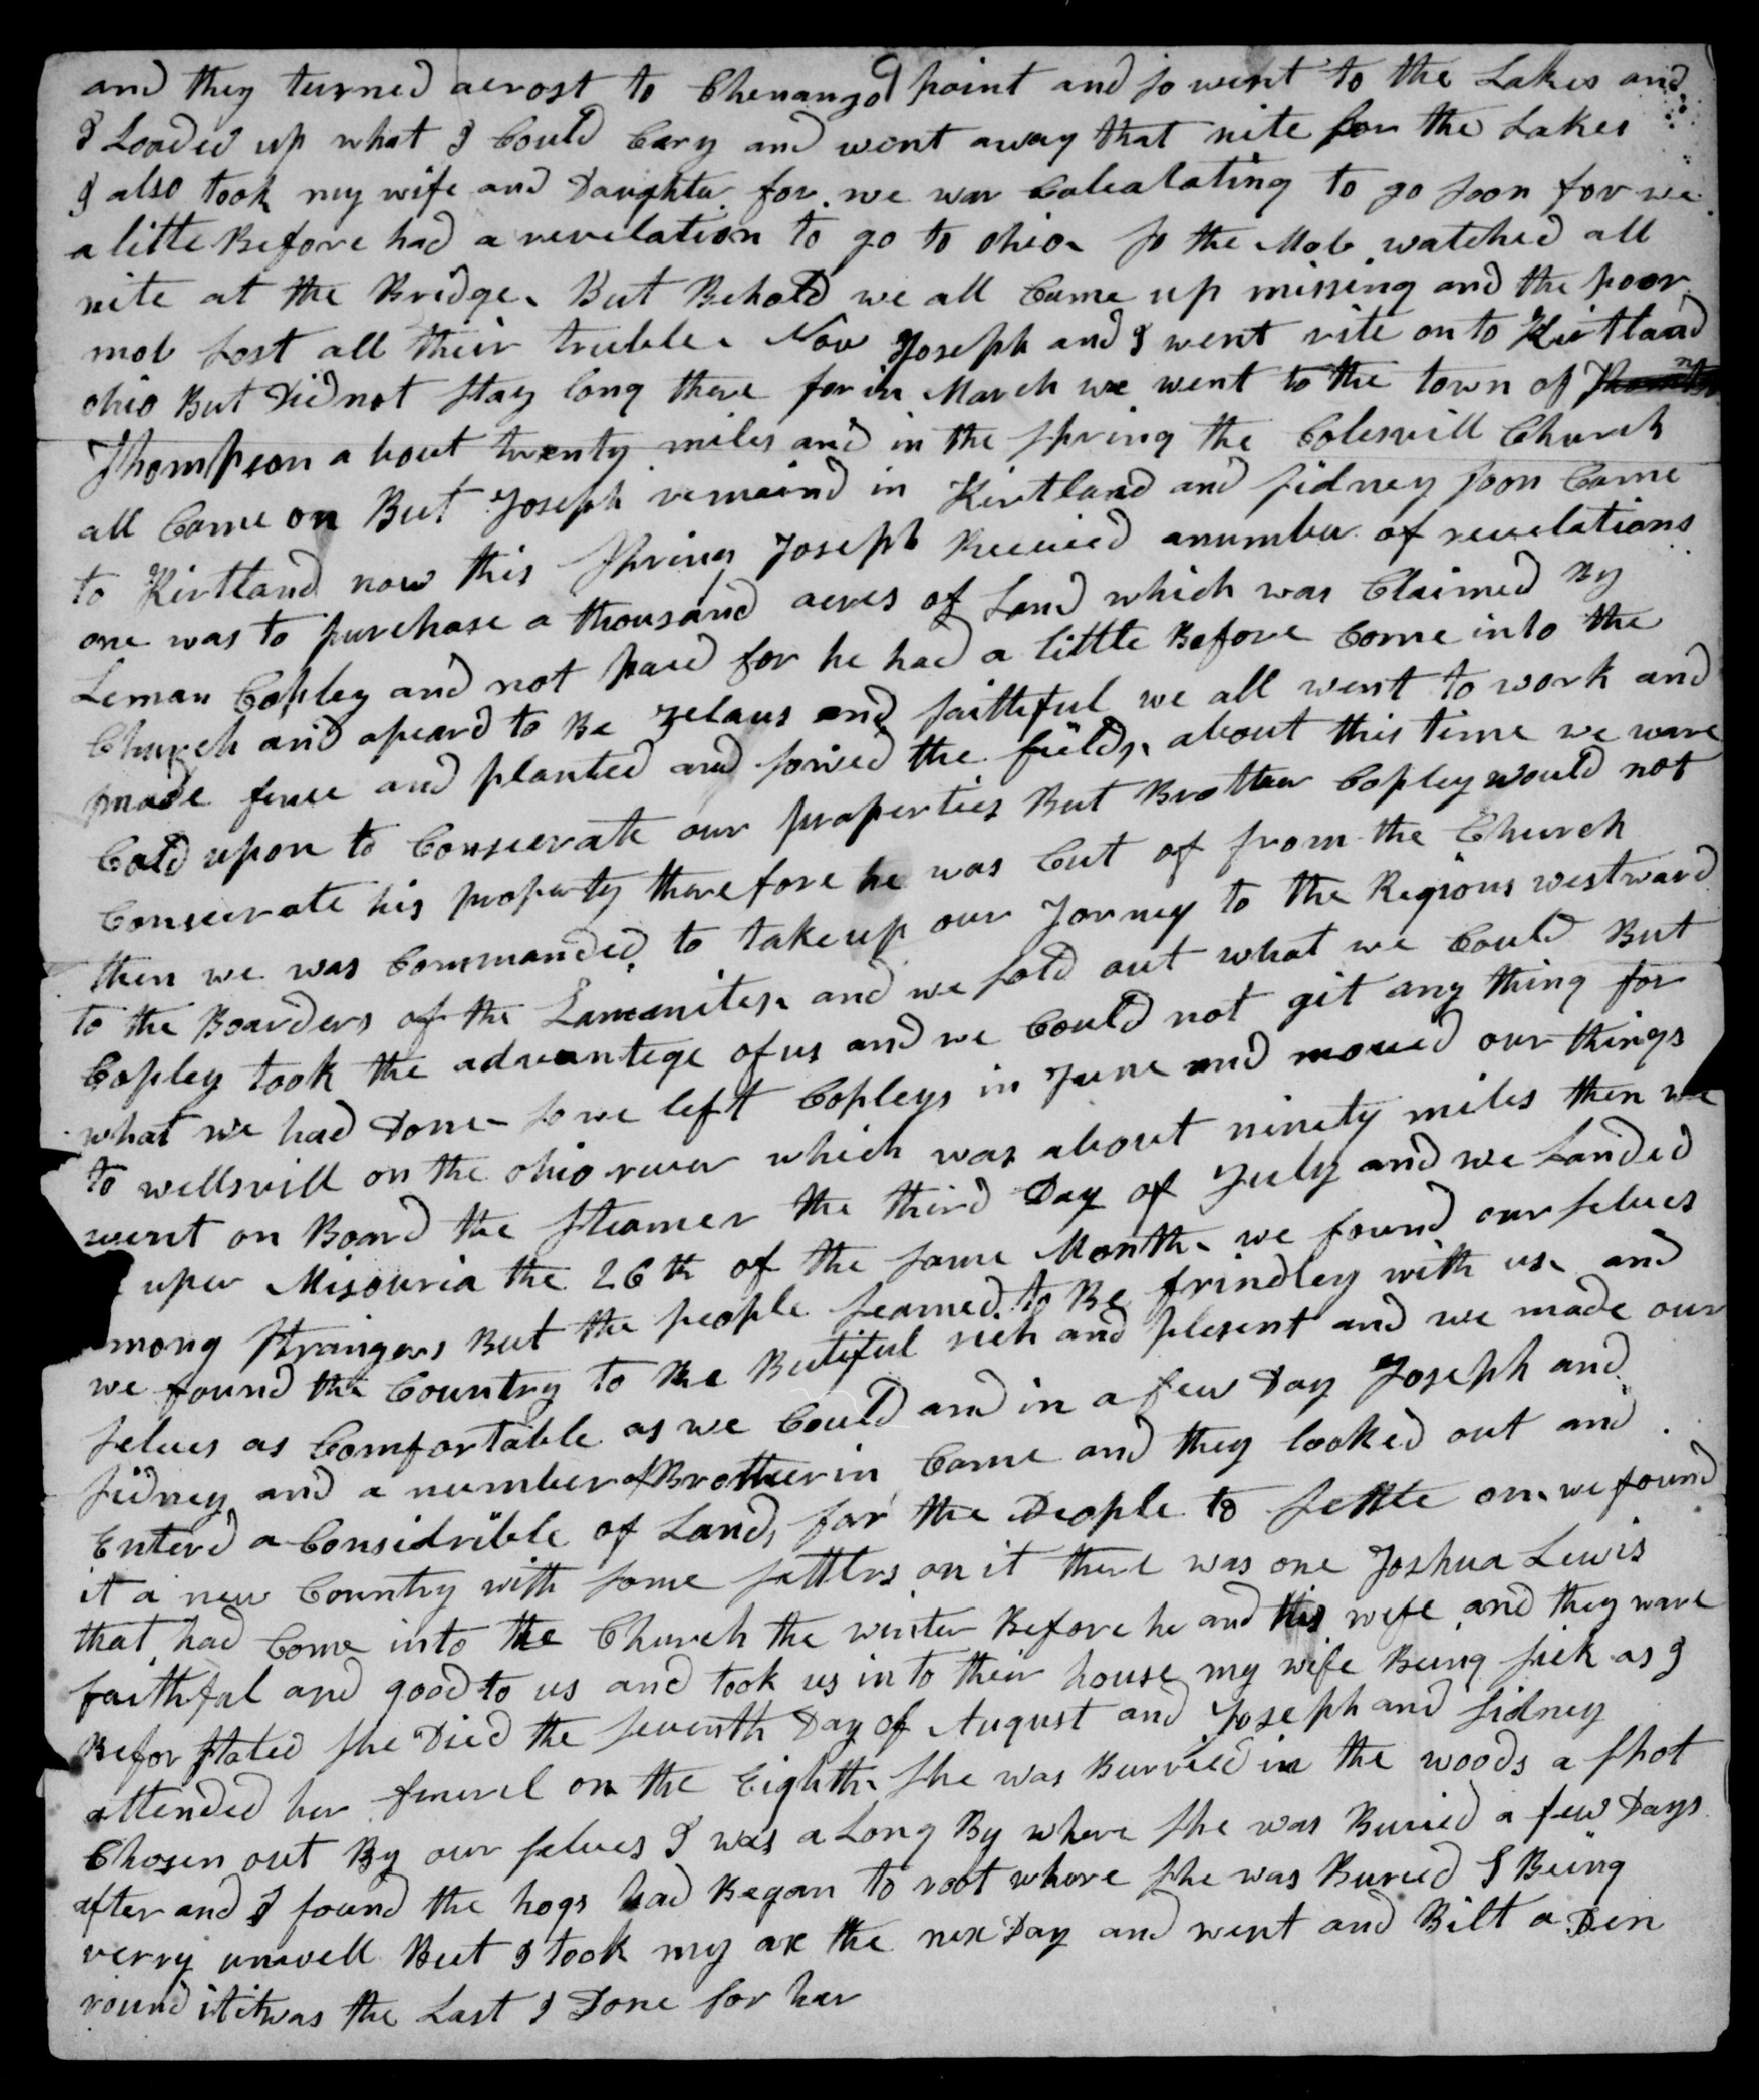 and they turned acrost to Chenango point and so went to the Lakes and
I Loaded up what I Could Cary and went away that nite for the Lakes
I also took my wife and Daughter for we war Calculating to go soon for we
a little Before had a revelation to go to ohio so the Mob watched all
nite at the Bridge But Behold we all Came up missing and the poor
mob lost all their truble Now Joseph and I went rite on to Kirtland
ohio But Did not stay long there for in March we went to the town of
Thompson a bout twenty miles and in the spring the Colesvill Church
all Came on But Joseph remaind in Kirtland and sidney soon Came
to Kirtland now this Spring Joseph Received anumber of revelations
one was to purchase a thousand acres of Land which was Claimed By
Leman Copley and not paid for he had a little Before Come into the
Church and apeard to Be zelaus and faithful we all went to work and
made fence and planted and sowed the fields about this time we ware
Cald upon to Consecrate our properties But Brother Copley would not
Consecrate his property therefore he was Cut of from the Church
then we was Commanded to take up our Jorney to the Regions westward
to the Boarders of the Lamenites and we sold out what we Could But
Copley took the advantege of us and we Could not git any thing for
what we had Done so we left Copleys in June and moved our things
to wellsvill on the ohio rever which was about ninety miles then we
went on Board the steamer the third Day of July and we Landed
uper Misouria the 26th of the same Month we found our selves
mong strangers But the people seamed to Be frindley with us and
we found the Country to Be Butiful rich and plesent and we made our
selves as Comfortable as we Could and in a few Day Joseph and
sidney and a number of Brotherin Came and they looked out and
Enterd a Considrible of Land for the People to settle on we found
it a new Country with some settlers on it there was one Joshua Lewis
that had Come into the Church the winter Before he and his wife and they ware
faithful and good to us and took us in to their house my wife Being sick as I
Befor stated she Died the seventh Day of August and Joseph and sidney
attended her funerel on the Eighth she was Burried in the woods a spot
Chosen out By our selves I was a Long By where she was Buried a few Days
after and I found the hogs had Began to root whare she was Buried I Being
verry unwell But I took my ax the nex Day and went and Bilt a Pen
round it it was the Last I Done for har